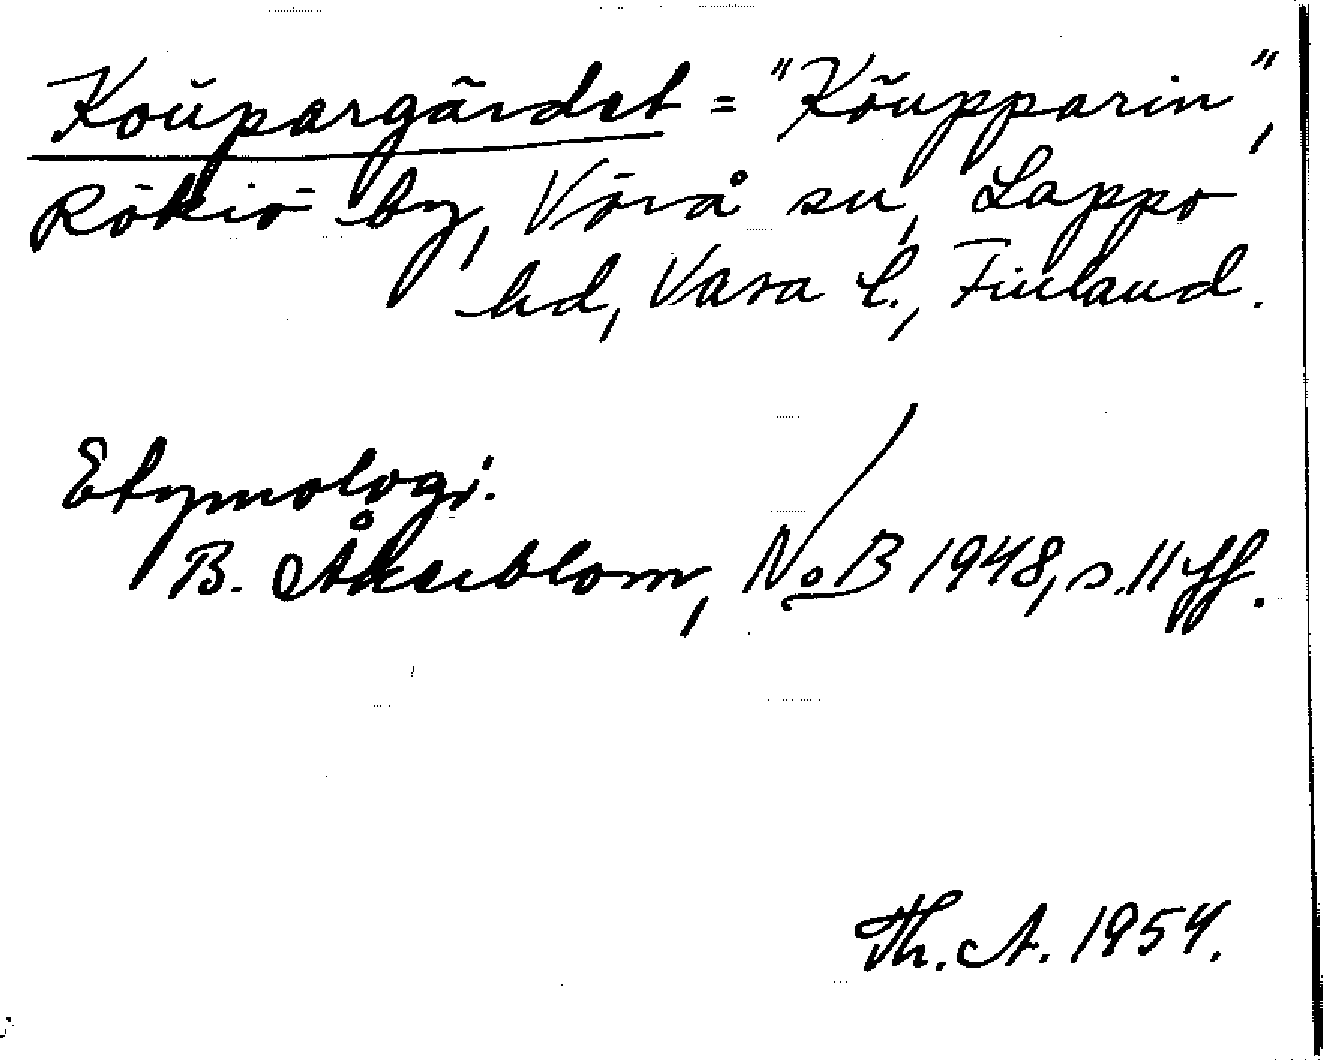 Koupargärdet = "Köupparin",
Rökiö by, Vörå sn, Lappo
hd, Vasa l., Finland.
Etymologi.
B. Åkerblom, NoB 1948, s. 11 ff.
Th. A. 1954.